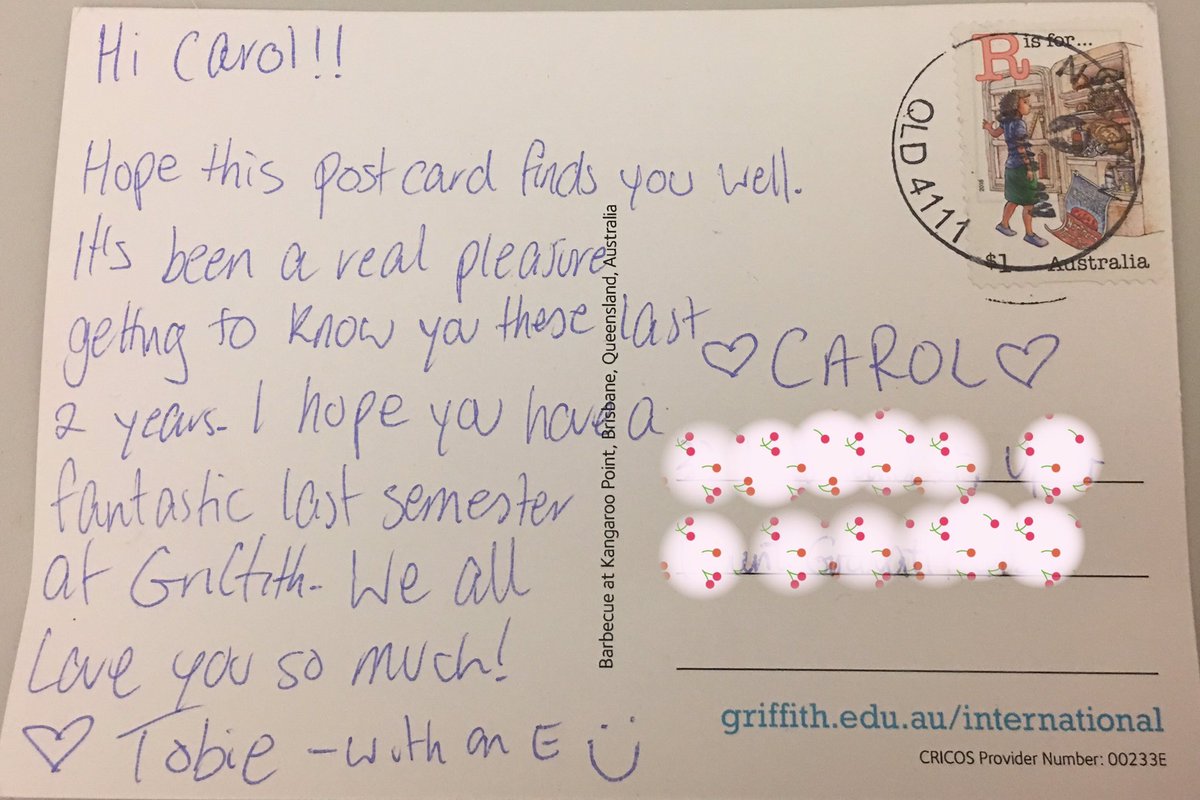 Hi Carol!!
Hope this postcard finds you well.
It's been a real pleasure
getting to know you these last
2 years. I hope you have a
fantastic last semester
at Griffith. We all
Love you so much!
♡ Tobie - with an E
Barbecue at Kangaroo Point, Brisbane, Queensland, Australia
R is for...
QLD 4111
$1 Australia
♡ CAROL ♡
griffith.edu.au/international
CRICOS Provider Number: 00233E